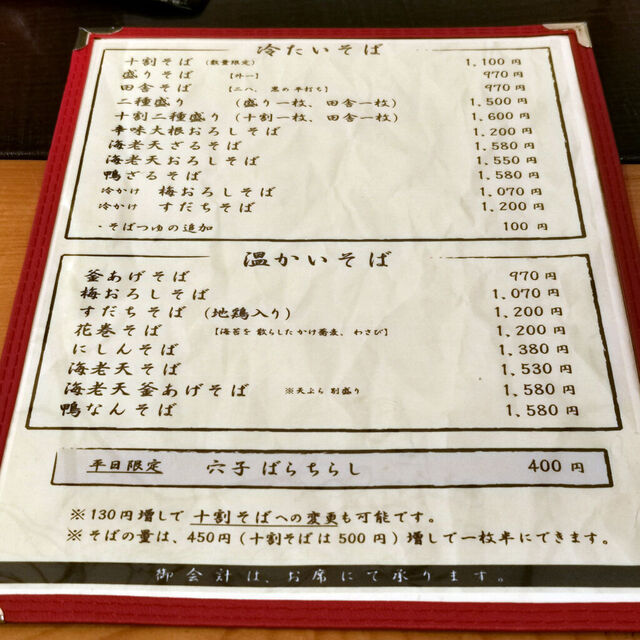 冷たいそば
十割そば (数量限定) 1,100円
盛りそば 【外一】 970円
田舎そば 【二八、黒の平打ち】 970円
二種盛り (盛り一枚、田舎一枚) 1,500円
十割二種盛り (十割一枚、田舎一枚) 1,600円
辛味大根おろしそば 1,200円
海老天ざるそば 1,580円
海老天おろしそば 1,550円
鴨ざるそば 1,580円
冷かけ 梅おろしそば 1,070円
冷かけ すだちそば 1,200円
・そばつゆの追加 100円
温かいそば
釜あげそば 970円
梅おろしそば 1,070円
すだちそば (地鶏入り) 1,200円
花巻そば 【海苔を散らしたかけ蕎麦、わさび】 1,200円
にしんそば 1,380円
海老天そば 1,530円
海老天釜あげそば ※天ぷら別盛り 1,580円
鴨なんそば 1,580円
平日限定 穴子ばらちらし 400円
※130円増しで十割そばへの変更も可能です。
※そばの量は、450円(十割そばは500円)増しで一枚半にできます。
御会計は、お席にて承ります。